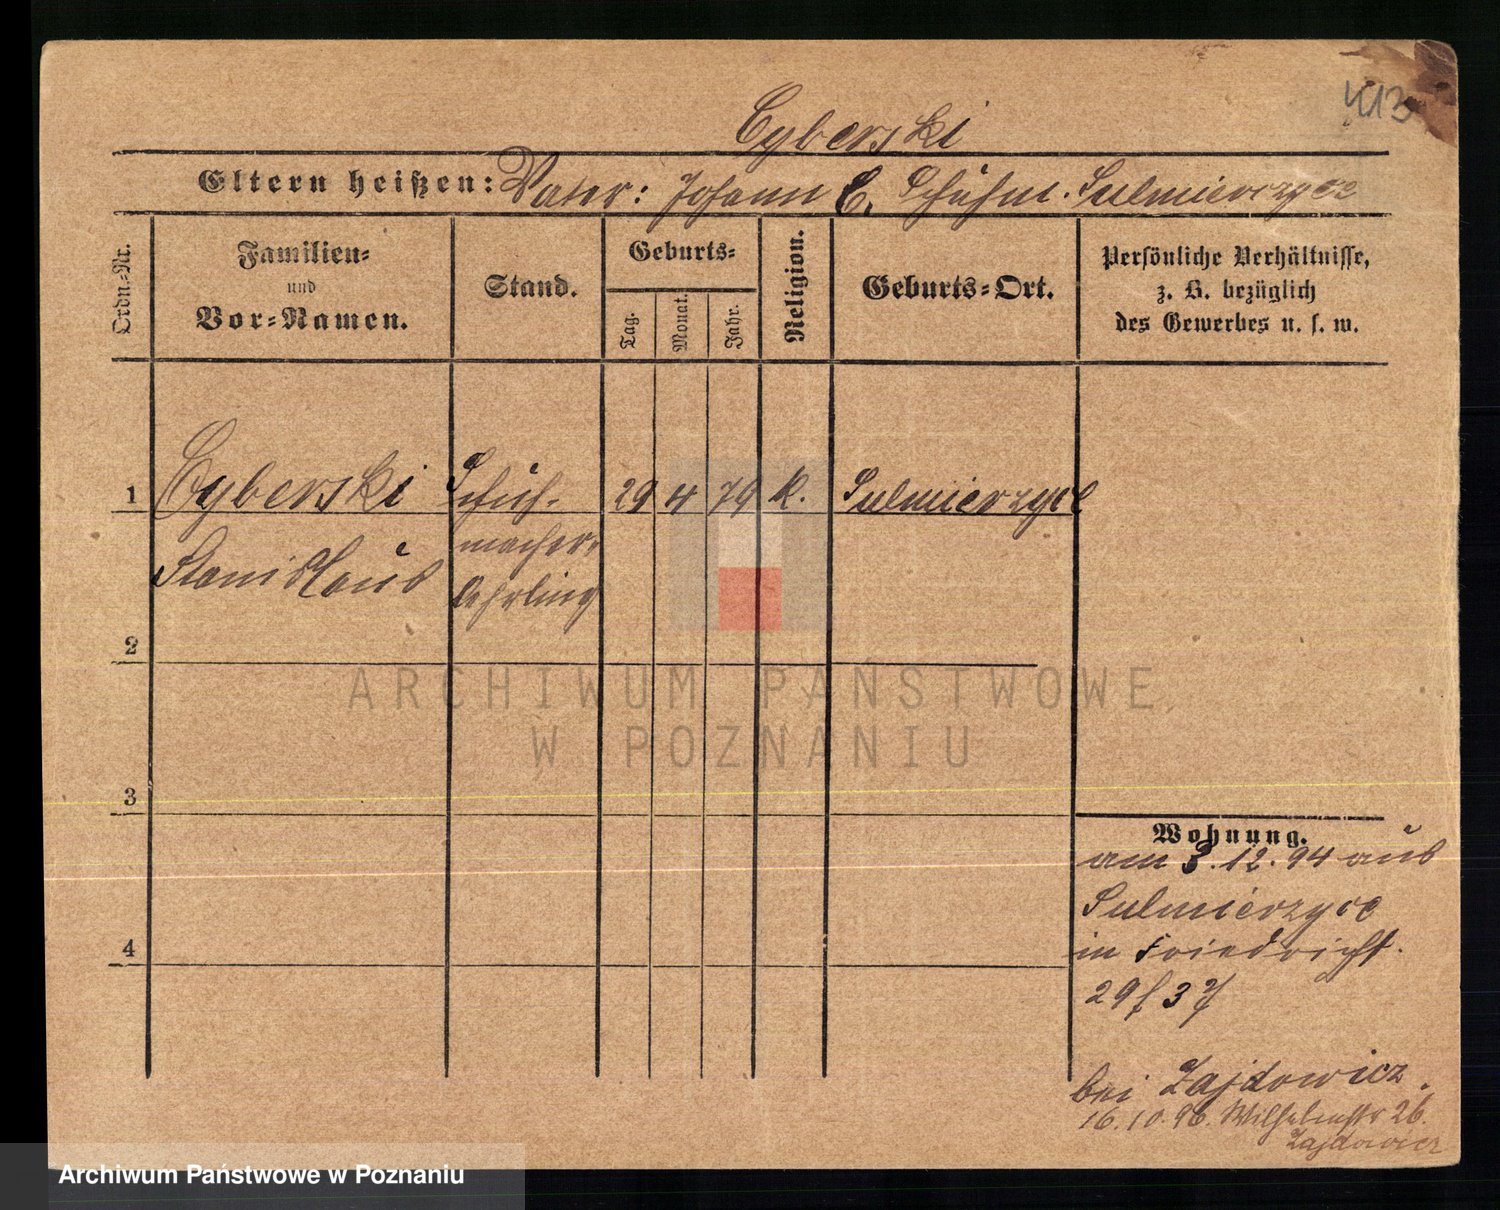 413
Cyberski
Eltern heißen: Vater: Johann C. Schuhm. Sulmierzyce
Ordn.-Nr.
Familien-
und
Vor-Namen.
Stand.
Geburts-
Tag.
Monat.
Jahr.
Religion.
Geburts-Ort.
Persönliche Verhältnisse,
z. B. bezüglich
des Gewerbes u. s. w.
1 Cyberski Schuh- 29 4 79 k. Sulmierzyce
macher
Stanislaus lehrling
2
3
4
Wohnung.
am 3.12.94 aus
Sulmierzyce
in Friedrichst.
29
bei Zajdowicz.
16.10.96. Wilhelmstr 26.
Zajdowicz
ARCHIWUM PAŃSTWOWE
W POZNANIU
Archiwum Państwowe w Poznaniu